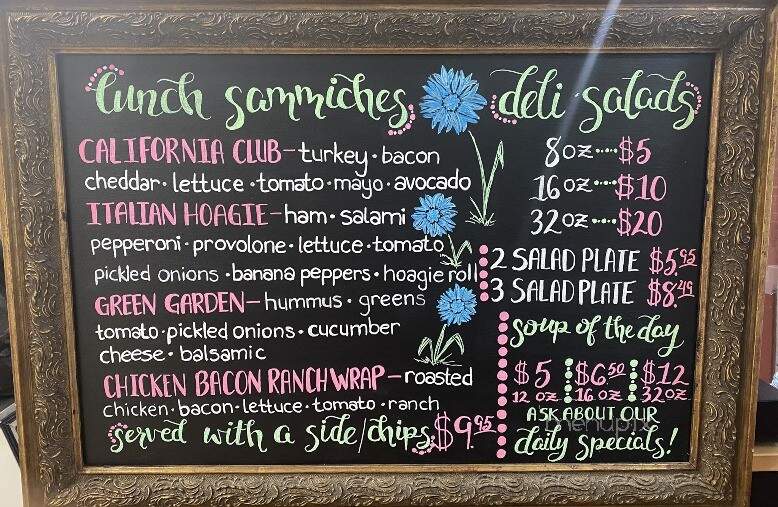 lunch sammiches
CALIFORNIA CLUB-turkey·bacon
cheddar·lettuce·tomato·mayo·avocado
ITALIAN HOAGIE-ham·salami
pepperoni·provolone·lettuce·tomato
pickled onions·banana peppers·hoagie roll
GREEN GARDEN-hummus·greens
tomato·pickled onions·cucumber
cheese·balsamic
CHICKEN BACON RANCH WRAP-roasted
chicken·bacon·lettuce·tomato·ranch
served with a side/chips $9.95
deli salads
8oz····$5
16oz····$10
32oz····$20
2 SALAD PLATE $5.95
3 SALAD PLATE $8.49
soup of the day
$5 $6.50 $12
12 oz 16 oz 32 oz
ASK ABOUT OUR
daily specials!
menupix